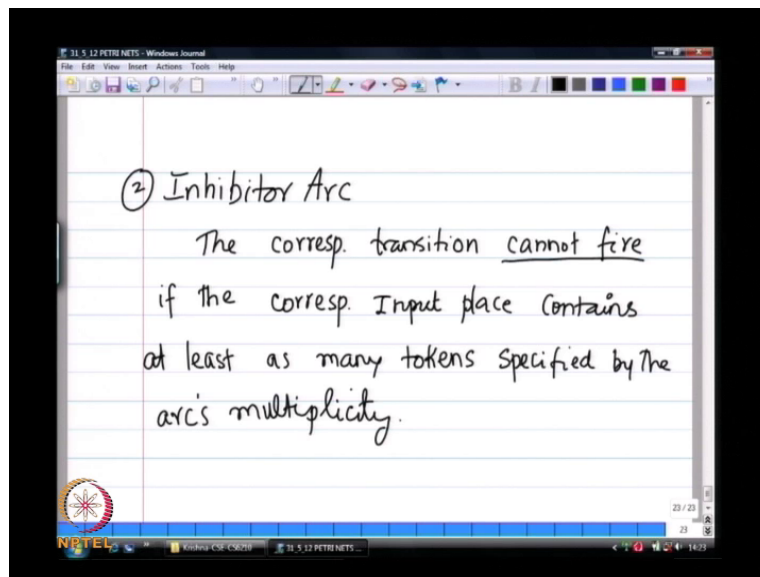 31_5_12 PETRI NETS - Windows Journal
File Edit View Insert Actions Tools Help
B I
② Inhibitor Arc
The corresp. transition cannot fire
if the corresp. Input place contains
at least as many tokens specified by the
arc's multiplicity.
23 / 23
23
NPTEL
Krishna-CSE-CS6210
31_5_12 PETRI NETS ...
14:23